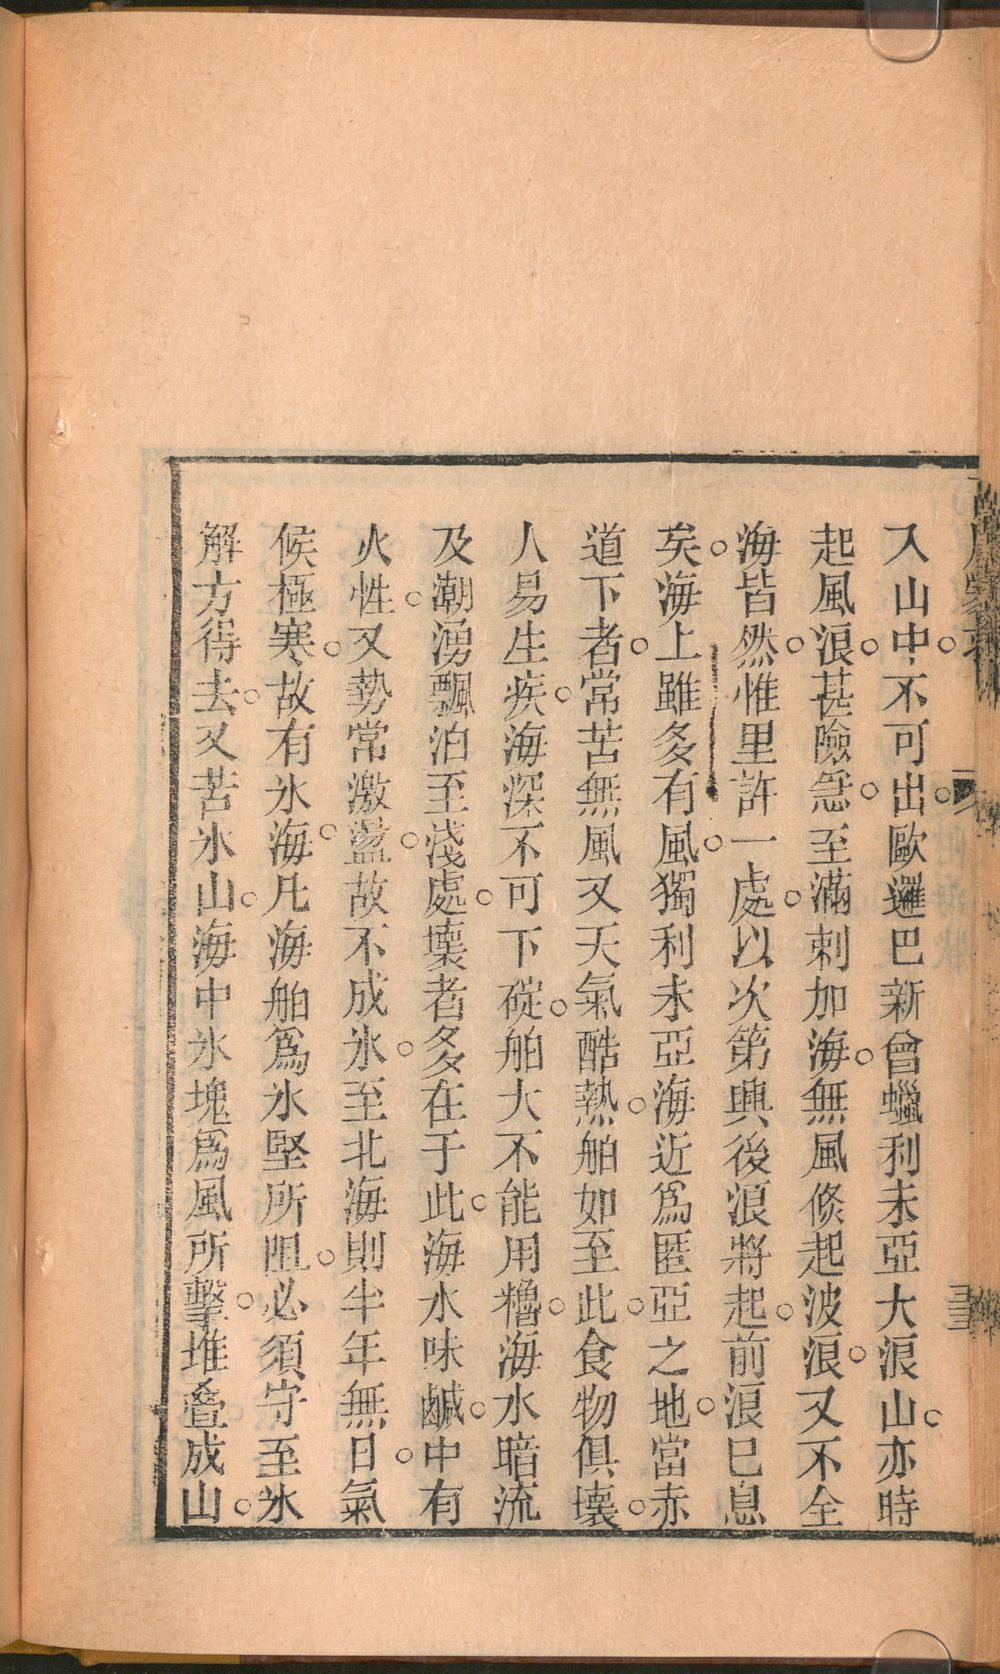 入山中不可出歐邏巴新曾蠟利未亞大浪山亦時
起風浪甚險急至滿剌加海無風倏起波浪又不全
海皆然惟里許一處以次第興後浪將起前浪已息
矣海上雖多有風獨利未亞海近爲匿亞之地當赤
道下者常苦無風又天氣酷熱舶如至此食物俱壞
人易生疾海深不可下碇舶大不能用櫓海水暗流
及潮湧飄泊至淺處壞者多在于此海水味鹹中有
火性又勢常激盪故不成氷至北海則半年無日氣
候極寒故有氷海凡海舶爲氷堅所阻必須守至氷
解方得去又苦氷山海中氷塊爲風所擊堆疊成山